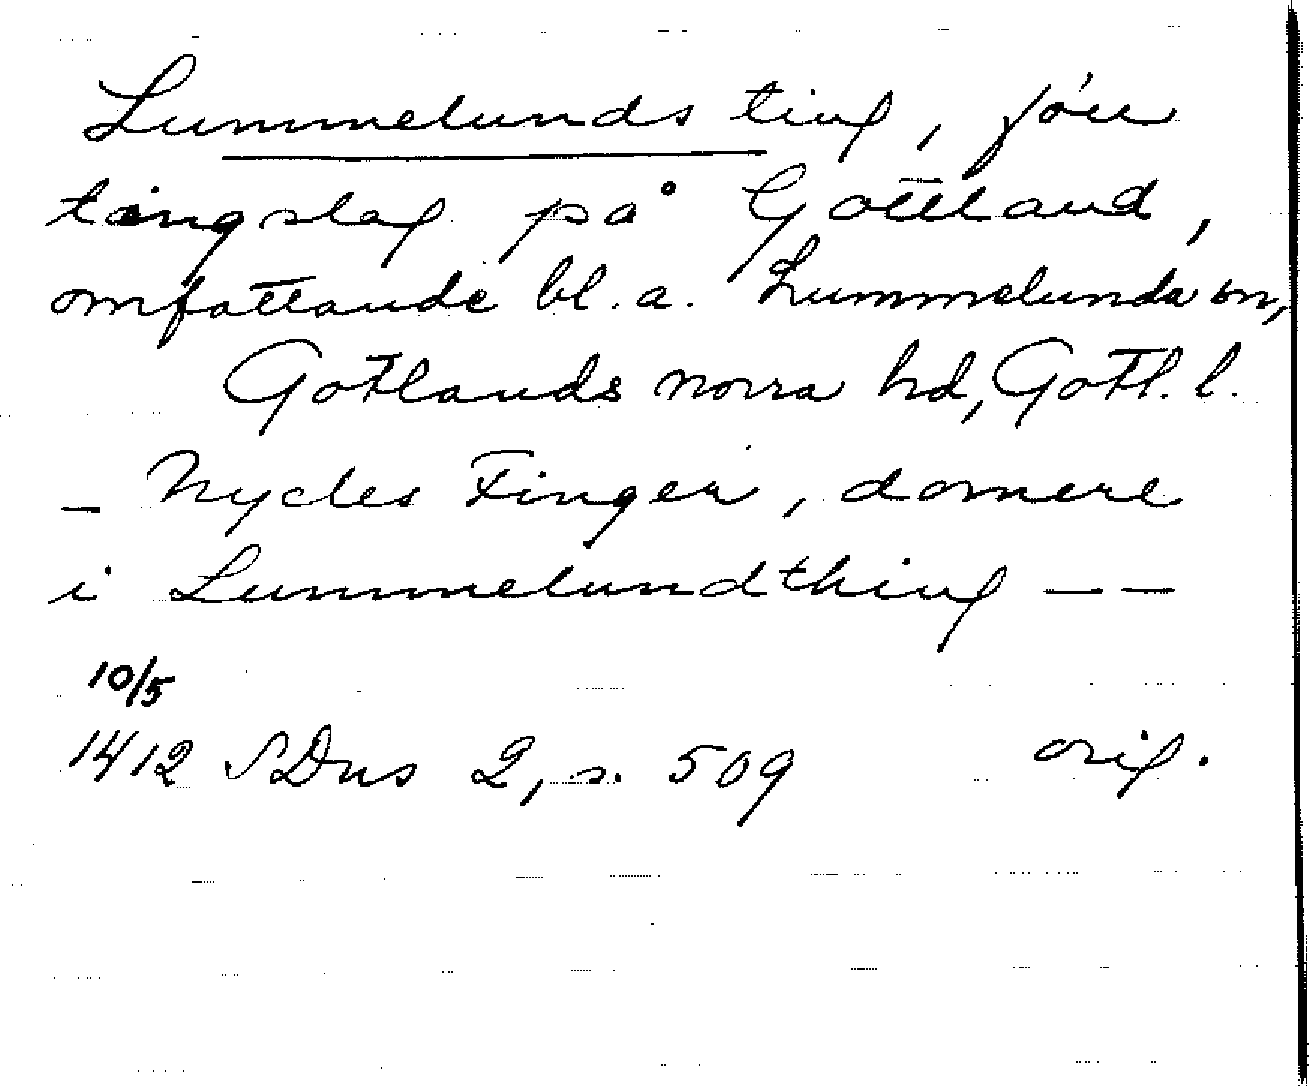 Lummelunds ting, förr
tingslag på Gottland,
omfattande bl.a. Lummelunda sn,
Gotlands norra hd, Gotl. l.
– Nycles Finger, domere
i Lummelundthing – –
10/5
1412 SDns 2, s. 509 orig.